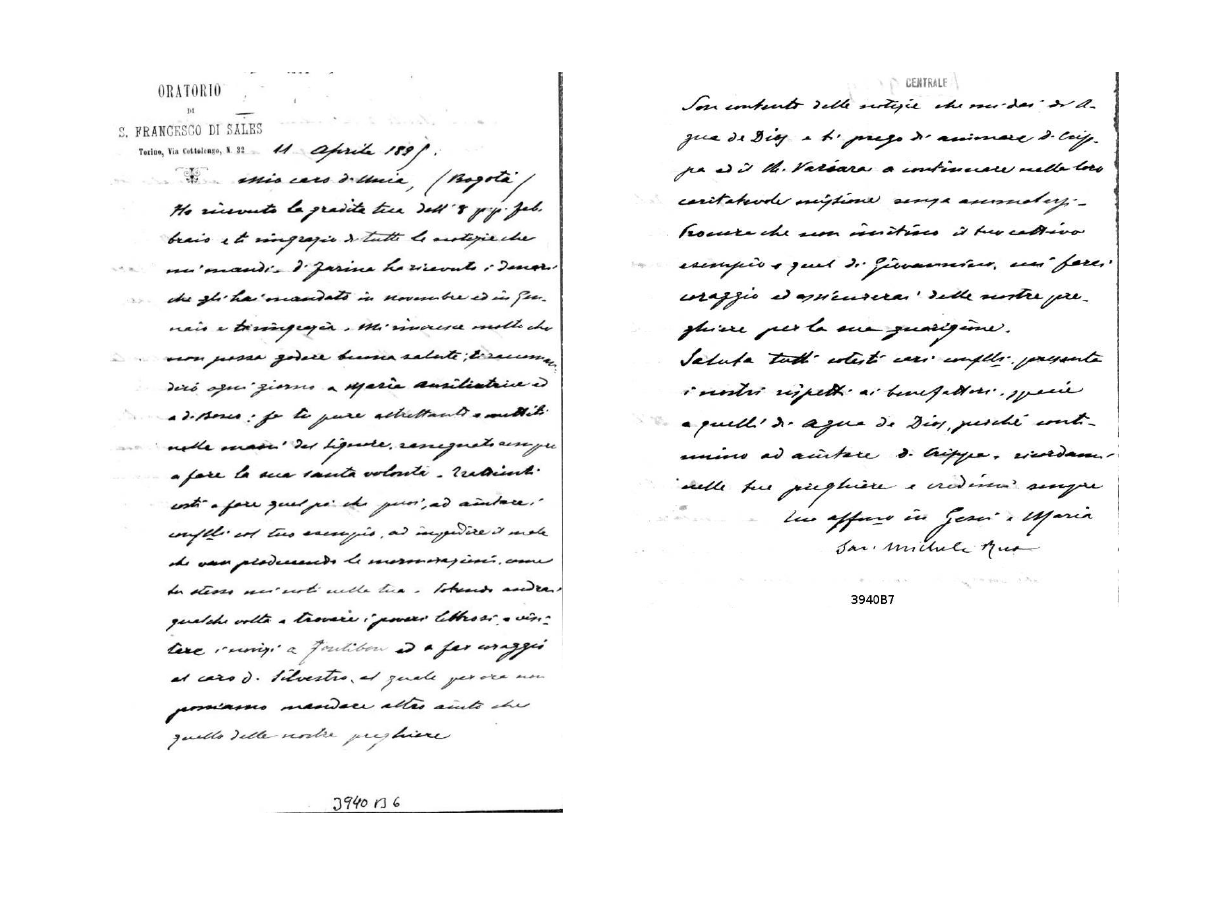 ORATORIO
DI
S. FRANCESCO DI SALES
Torino, Via Cottolengo, N. 32
11 Aprile 1895.
Mio caro D. Unia, (Bogotà)
Ho ricevuto la gradita tua dell' 8 p.p. feb.
braio e ti ringrazio di tutte le notizie che
mi mandi. D. Farina ha ricevuto i denari
che gli hai mandato in novembre ed in Gen-
naio e ti ringrazia. Mi rincresce molto che
non possa godere buona salute; ti raccoman
derò ogni giorno a Maria Ausiliatrice ed
a D. Bosco: fa tu pure altrettanto e mettiti
nelle mani del Signore, rassegnato sempre
a fare la sua santa volontà. Trattienti
costì a fare quel po' che puoi, ad aiutare i
conflli col tuo esempio, ad impedire il male
che van producendo le mormorazioni, come
tu stesso mi noti nella tua. Potendo andrai
qualche volta a trovare i poveri lebbrosi, a visi-
tare i novizi a Fontibon ed a far coraggio
al caro D. Silvestro, al quale per ora non
possiamo mandare altro aiuto che
quello delle nostre preghiere
3940 B 6
CENTRALE
Son contento delle notizie che mi dai di A-
gua de Dios e ti prego di animare D. Crip-
pa ed il Ch. Variara a continuare nella loro
caritatevole missione senza ammalarsi.
Procura che non imitino il tuo cattivo
esempio e quel di Giovannino, cui farai
coraggio ed assicurerai delle nostre pre-
ghiere per la sua guarigione.
Saluta tutti cotesti cari conflli, presenta
i nostri rispetti ai benefattori, specie
a quelli di Agua de Dios, perché conti-
nuino ad aiutare D. Crippa, ricordami
nelle tue preghiere e credimi sempre
Tuo affmo in Gesù e Maria
Sac. Michele Rua
3940B7